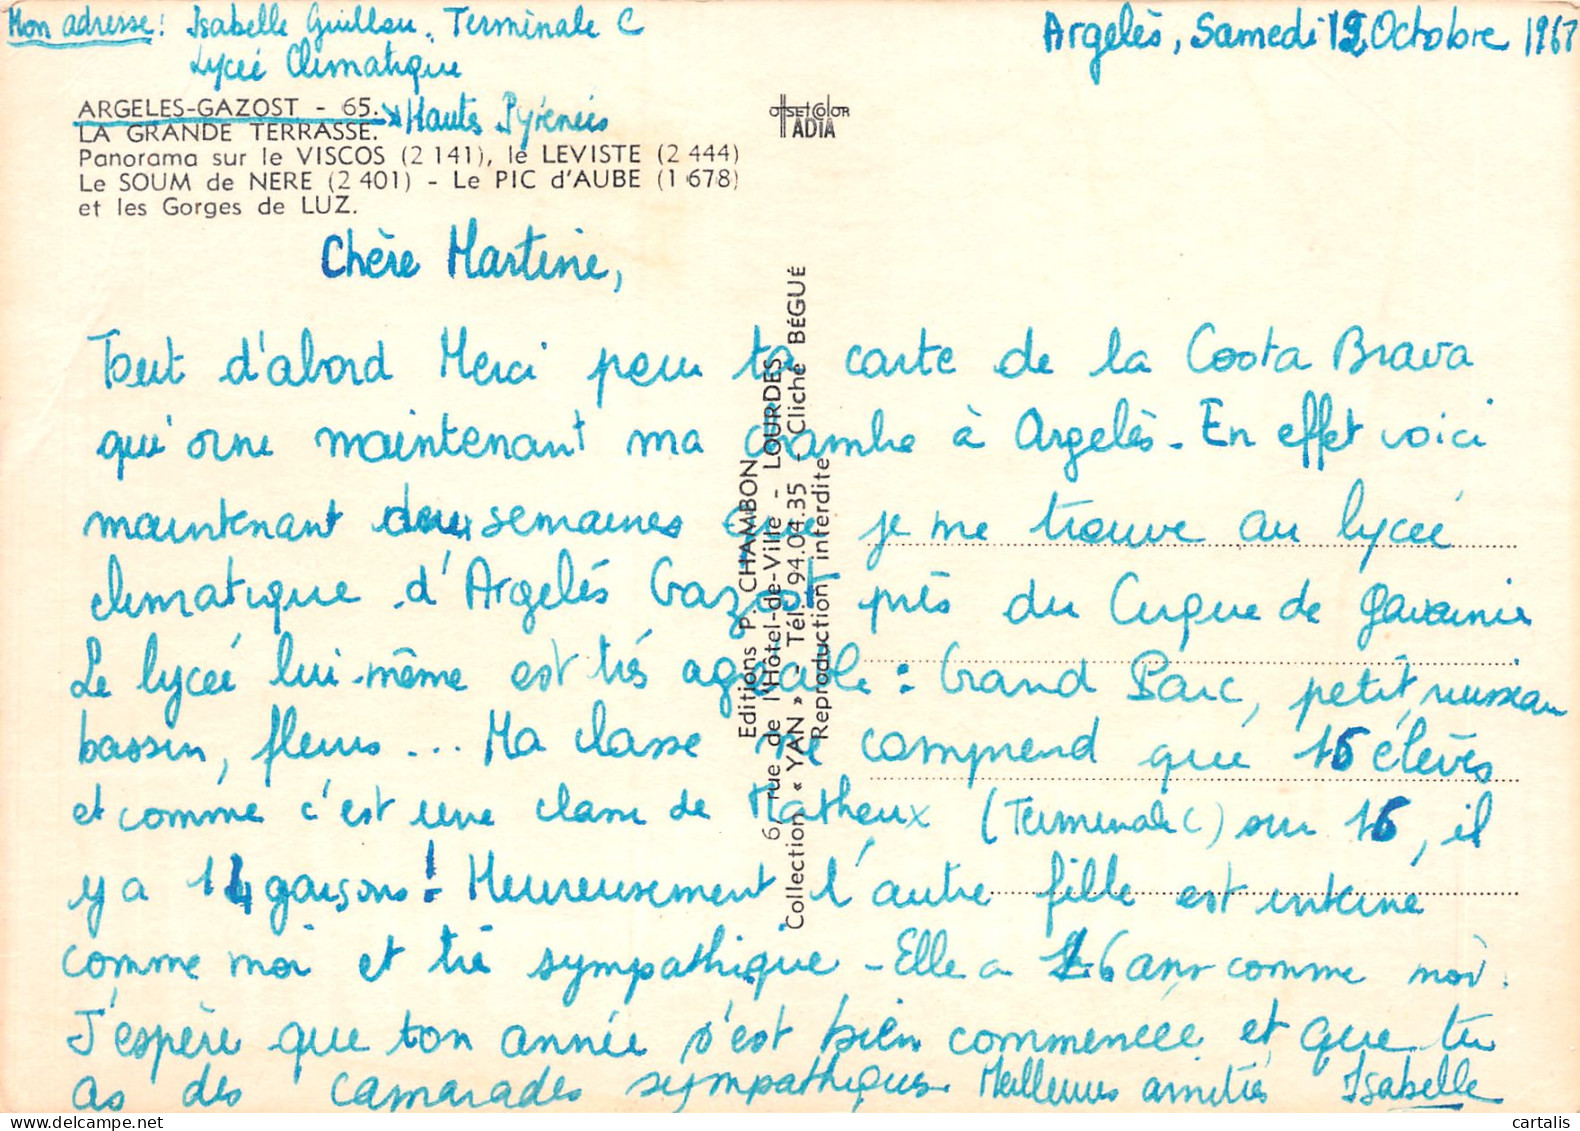 Mon adresse: Isabelle Guillou. Terminale C
Lycée Climatique
Argelès, Samedi 12 Octobre 1967
ARGELES-GAZOST - 65. Hautes Pyrénées
LA GRANDE TERRASSE.
Panorama sur le VISCOS (2 141), le LEVISTE (2 444)
Le SOUM de NERE (2 401) - Le PIC d'AUBE (1 678)
et les Gorges de LUZ.
OffSET COlOR
IADIA
Chère Martine,
Tout d'abord Merci pour ta carte de la Costa Brava
qui orne maintenant ma chambre à Argelès - En effet voici
maintenant deux semaines que je me trouve au lycée
climatique d'Argelès Gazost près du Cirque de Gavarnie
Le lycée lui-même est très agréable : Grand Parc, petit ruisseau
bassin, fleurs ... Ma classe ne comprend que 16 élèves
et comme c'est une classe de Matheux (Terminale C) sur 16, il
y a 14 garçons ! Heureusement l'autre fille est interne
comme moi et très sympathique - Elle a 16 ans comme moi.
J'espère que ton année s'est bien commencée et que tu
as des camarades sympathiques. Meilleures amitiés Isabelle
Editions P. CHAMBON
6, rue de l'Hôtel-de-Ville - LOURDES
Collection « YAN » - Tél. 94.04.35 - Cliché BÉGUÉ
Reproduction interdite
cartalis